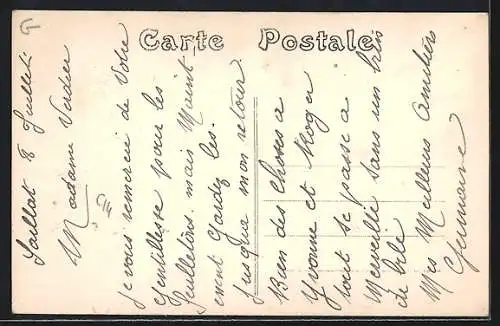 Carte Postale
Saillat 8 Juillet
Madame Verdier
je vous remercie de Votre
gentillesse pour les
feuilletons. mais Maint
enent gardez les.
jusque mon retour.
Bien des choses a
Yvonne et Roger
tout se passe a
Merveille sans un
de
Mes Meilleurs Amitiers
Germaine